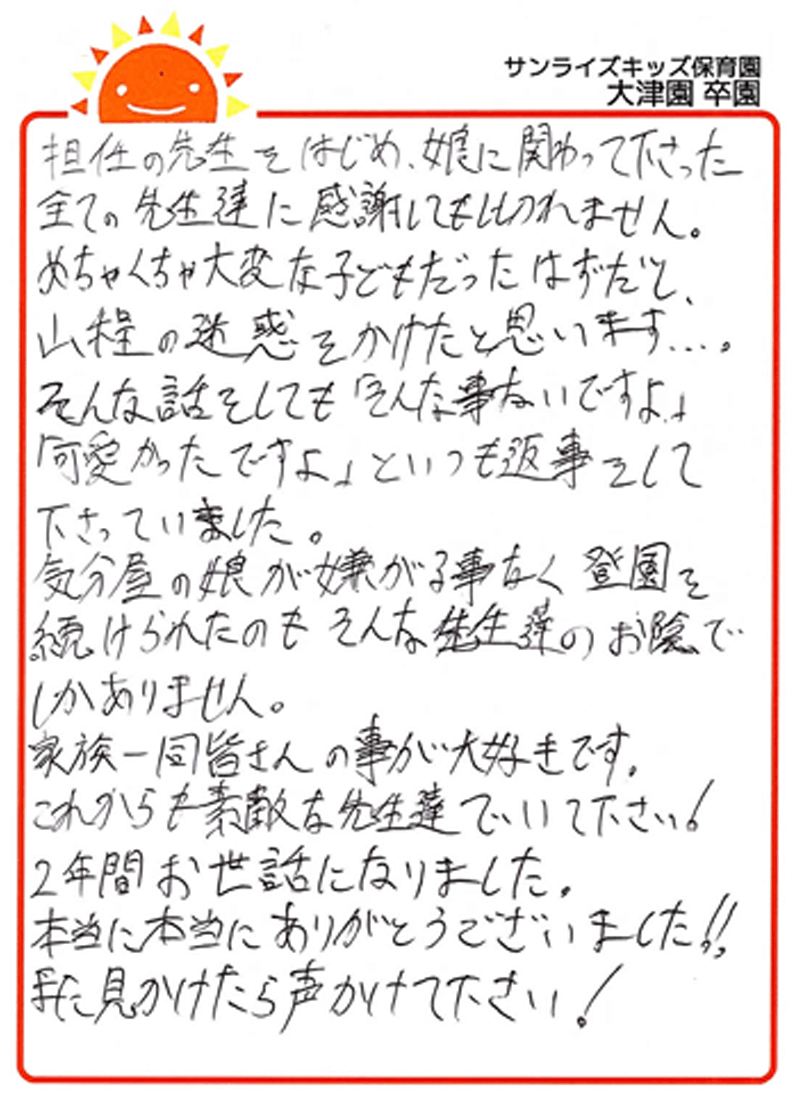 サンライズキッズ保育園
大津園 卒園
担任の先生をはじめ、娘に関わって下さった
全ての先生達に感謝してもしきれません。
めちゃくちゃ大変な子どもだったはずだし、
山程の迷惑をかけたと思います…。
そんな話をしても「そんな事ないですよ」
「可愛かったですよ」といつも返事をして
下さっていました。
気分屋の娘が嫌がる事なく登園を
続けられたのもそんな先生達のお陰で
しかありません。
家族一同皆さんの事が大好きです。
これからも素敵な先生達でいて下さい!
2年間お世話になりました。
本当に本当にありがとうございました!!
また見かけたら声かけて下さい!